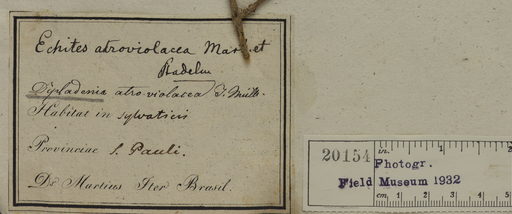 Echites atroviolacea Mart. et
Stadelm
Dipladenia atroviolacea J. Müll.
Habitat in sylvaticis
Provinciae S. Pauli.
Dr Martius Iter Brasil.
in. 1 2
20154
Photogr.
Field Museum 1932
cm. 1 2 3 4 5